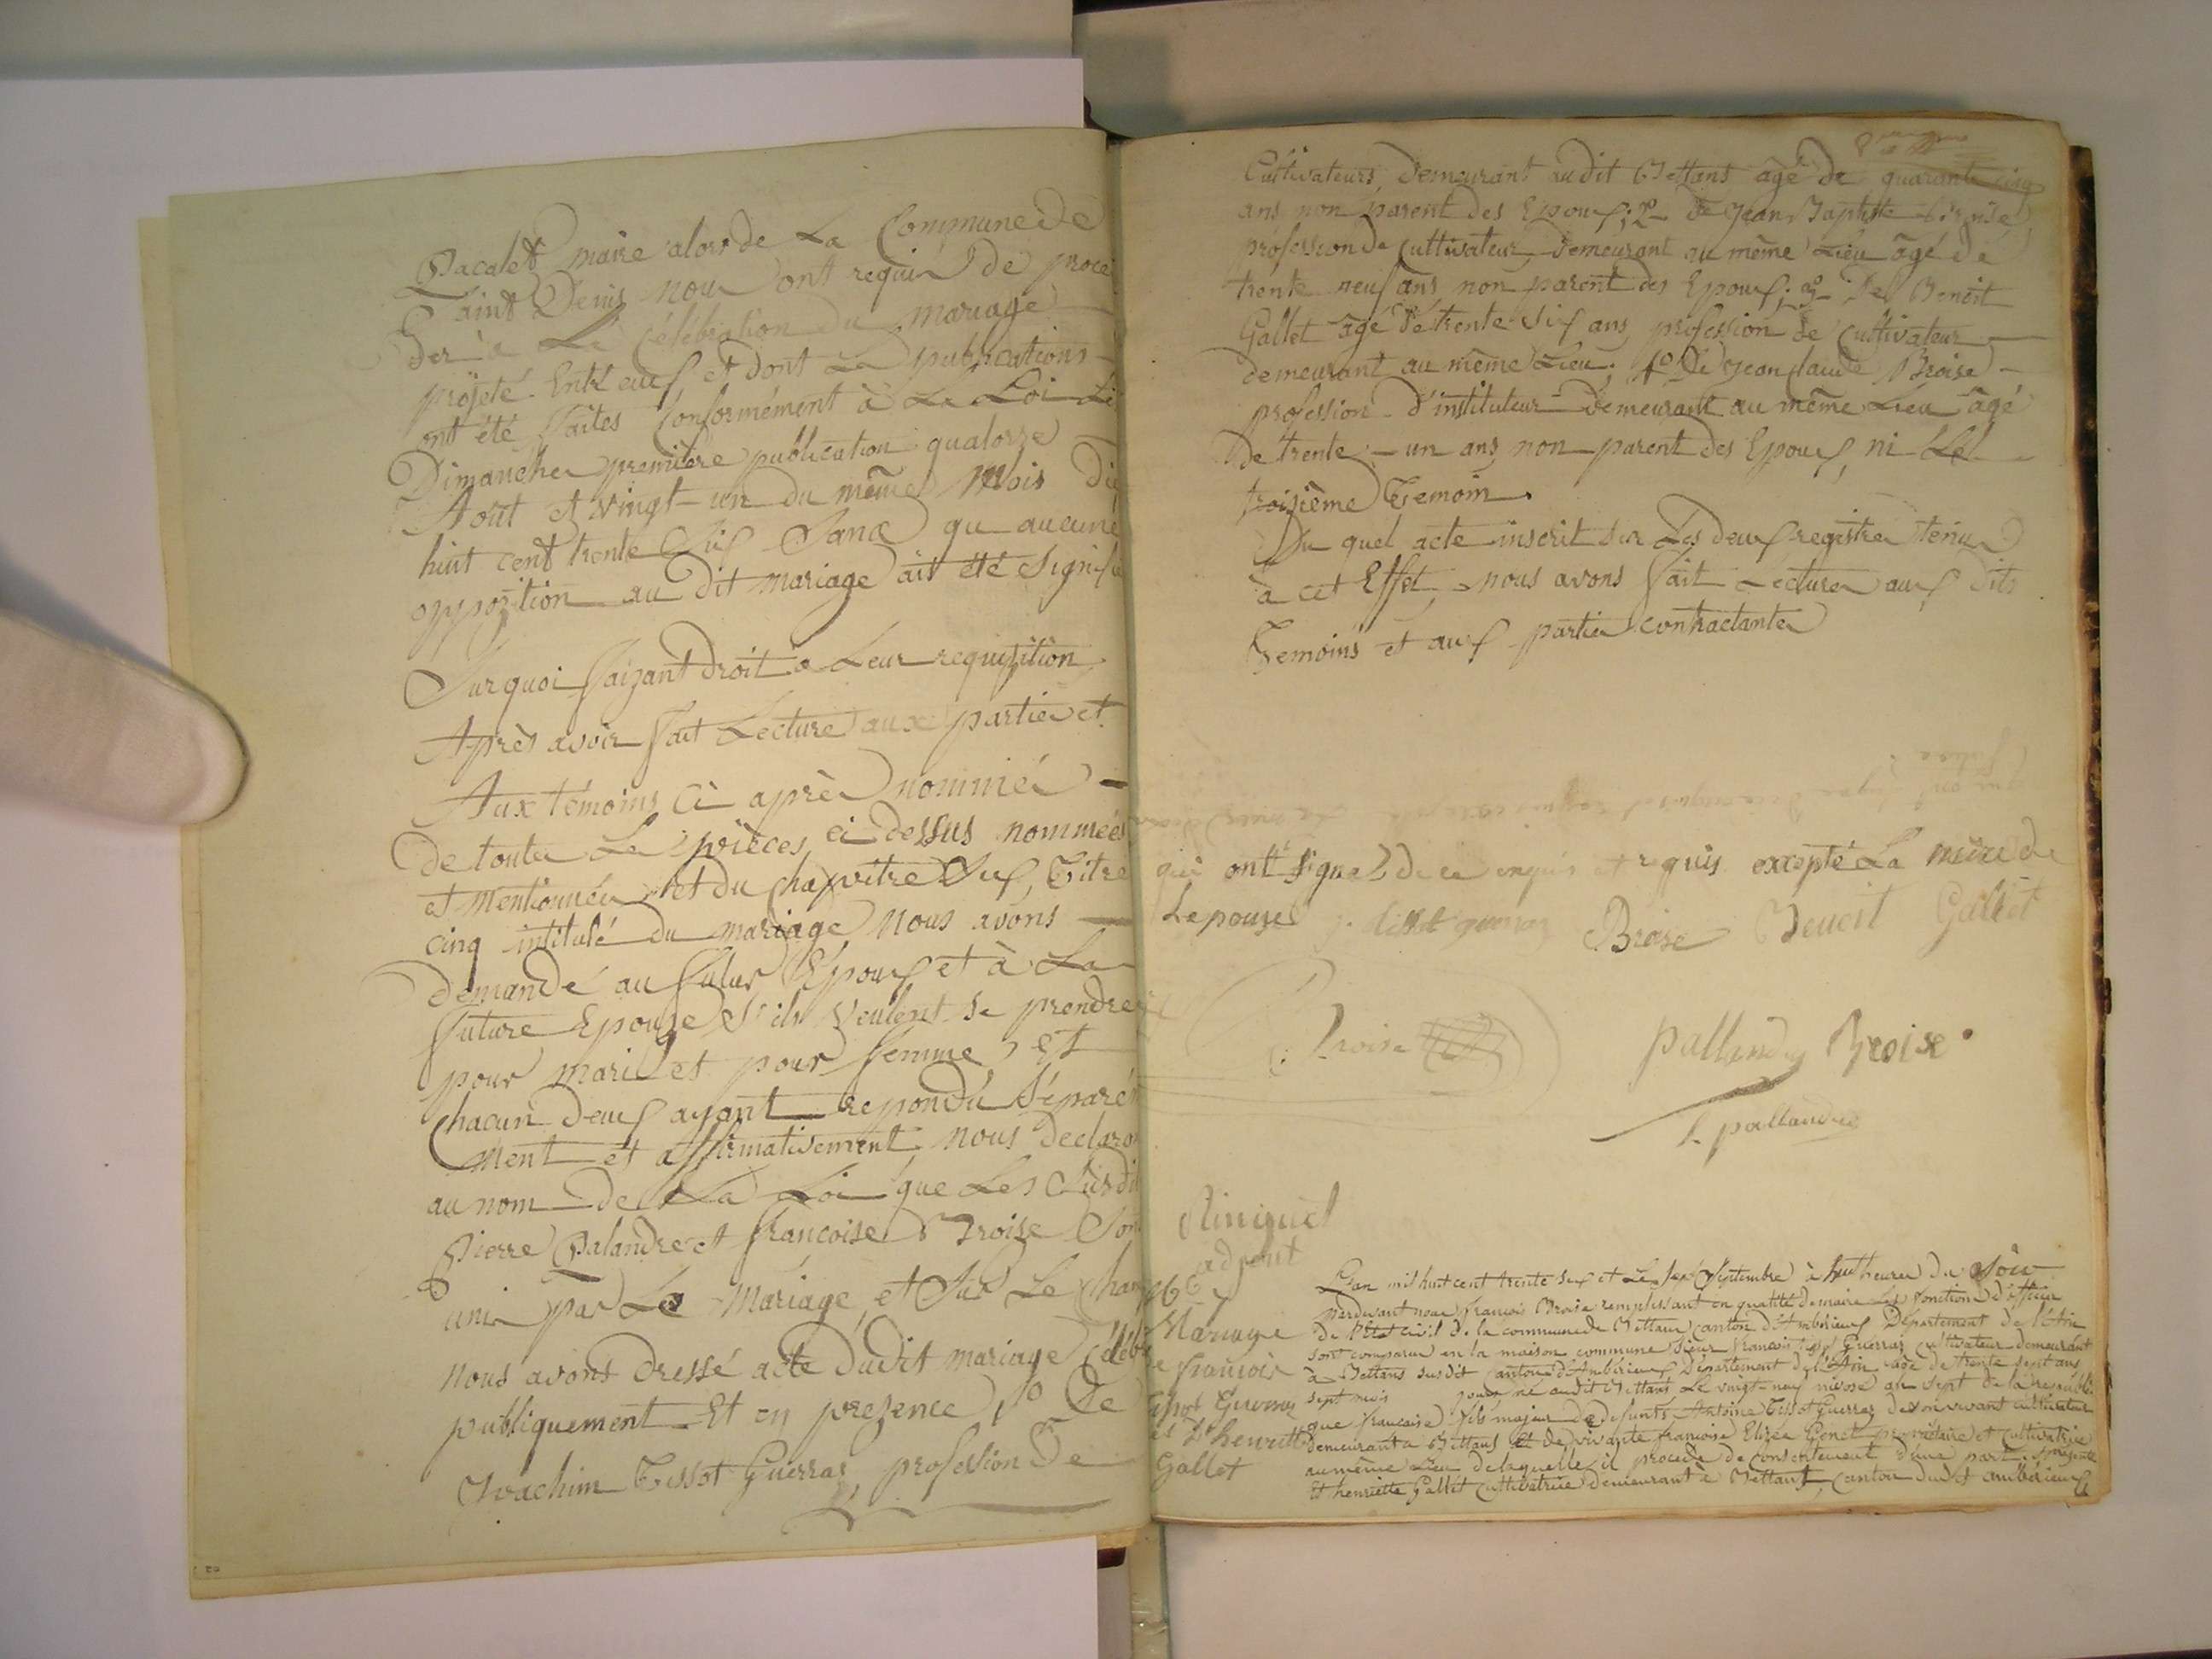 Pacalet maire alors de La Commune de
Saint Denis nous ont requis de procé
der à La Célébration du mariage
projeté Entre eux et dont Les publications
ont été faites Conformément à La Loi Le
Dimanche premiere publication quatorze
Aout et vingt-un du même Mois Dix
huit cent trente Six Sans qu aucune
opposition au dit mariage ait été Signifié
Sur quoi faizant droit à Leur requizition
Après avoir fait Lecture aux parties et
Aux témoins Ci après nommés
de toutes Les pièces ci dessus nommées
et Mentionnées et du Chapitre Six, Titre
cinq intitulé du mariage Nous avons
demandé au futur Epoux et à La
future Epouze S'ils veulent se prendre
pour mari et pour femme, et
Chacun deux ayant repondu Séparé
ment et affirmativement nous Declaron
au nom de La Loi que Les Susdit
Pierre Palandre et françoise Broise Son
unis par Le Mariage et Sur Le Cham
nous avons dressé acte dudit mariage Célébré
publiquement Et en prezence 1º De
Joachim Tissot Guerraz profession De
Cultivateurs, Demeurant audit Bettans agé De quarante cinq
ans non parent des Epoux; 2º De Jean Baptiste Broise
profession de Cultivateur Demeurant au même Lieu âgé de
trente neuf ans non parent des Epoux; 3º De Benoit
Gallet âgé de trente Six ans profession de Cultivateur
demeurant au même Lieu; 4º De Jean Claude Broise
profession d'instituteur Demeurant au même Lieu âgé
de trente-un ans non parent des Epoux, ni Le
troizième Temoin.
Du quel acte inscrit Sur Les deux registres tenus
à cet Effet, nous avons fait Lecture aux dits
Temoins et aux parties contractantes
qui ont signé de ce enquis et requis excepté La mère de
Lepouze Broise Benoit Gallet
Broise pallandre Broise
palandre
adjoint
Nº 6
Mariage
de francois
tissot Guerraz
et D'henriette
Gallet
L'an mil huit cent trente six et Le Sept Septembre à huit heures du Soir
Pardevant nous françois Broise remplissant en qualité de maire Les fonctions d'officier
de l'état Civil de la commune de Bettans Canton d'Ambérieux Département de l'Ain
Sont comparus en la maison commune Sieur francois tissot Guerraz cultivateur demeurant
à Bettans susdit Canton d'Ambérieux Département de l'Ain âgé de trente sept ans
sept mois jours né audit Bettans Le vingt-neuf nivose an Sept de la républi
que francaise fils majeur de defunts Antoine tissot Guerraz de son vivant cultivateur
demeurant a Bettans Et de vivante francoise Elizée Genet propriétaire et Cultivatrice
au même Lieu de laquelle il procede de Consentement d'une part
Et henriette Gallet Cultivatrice demeurant à Bettans Canton dudit Ambérieux